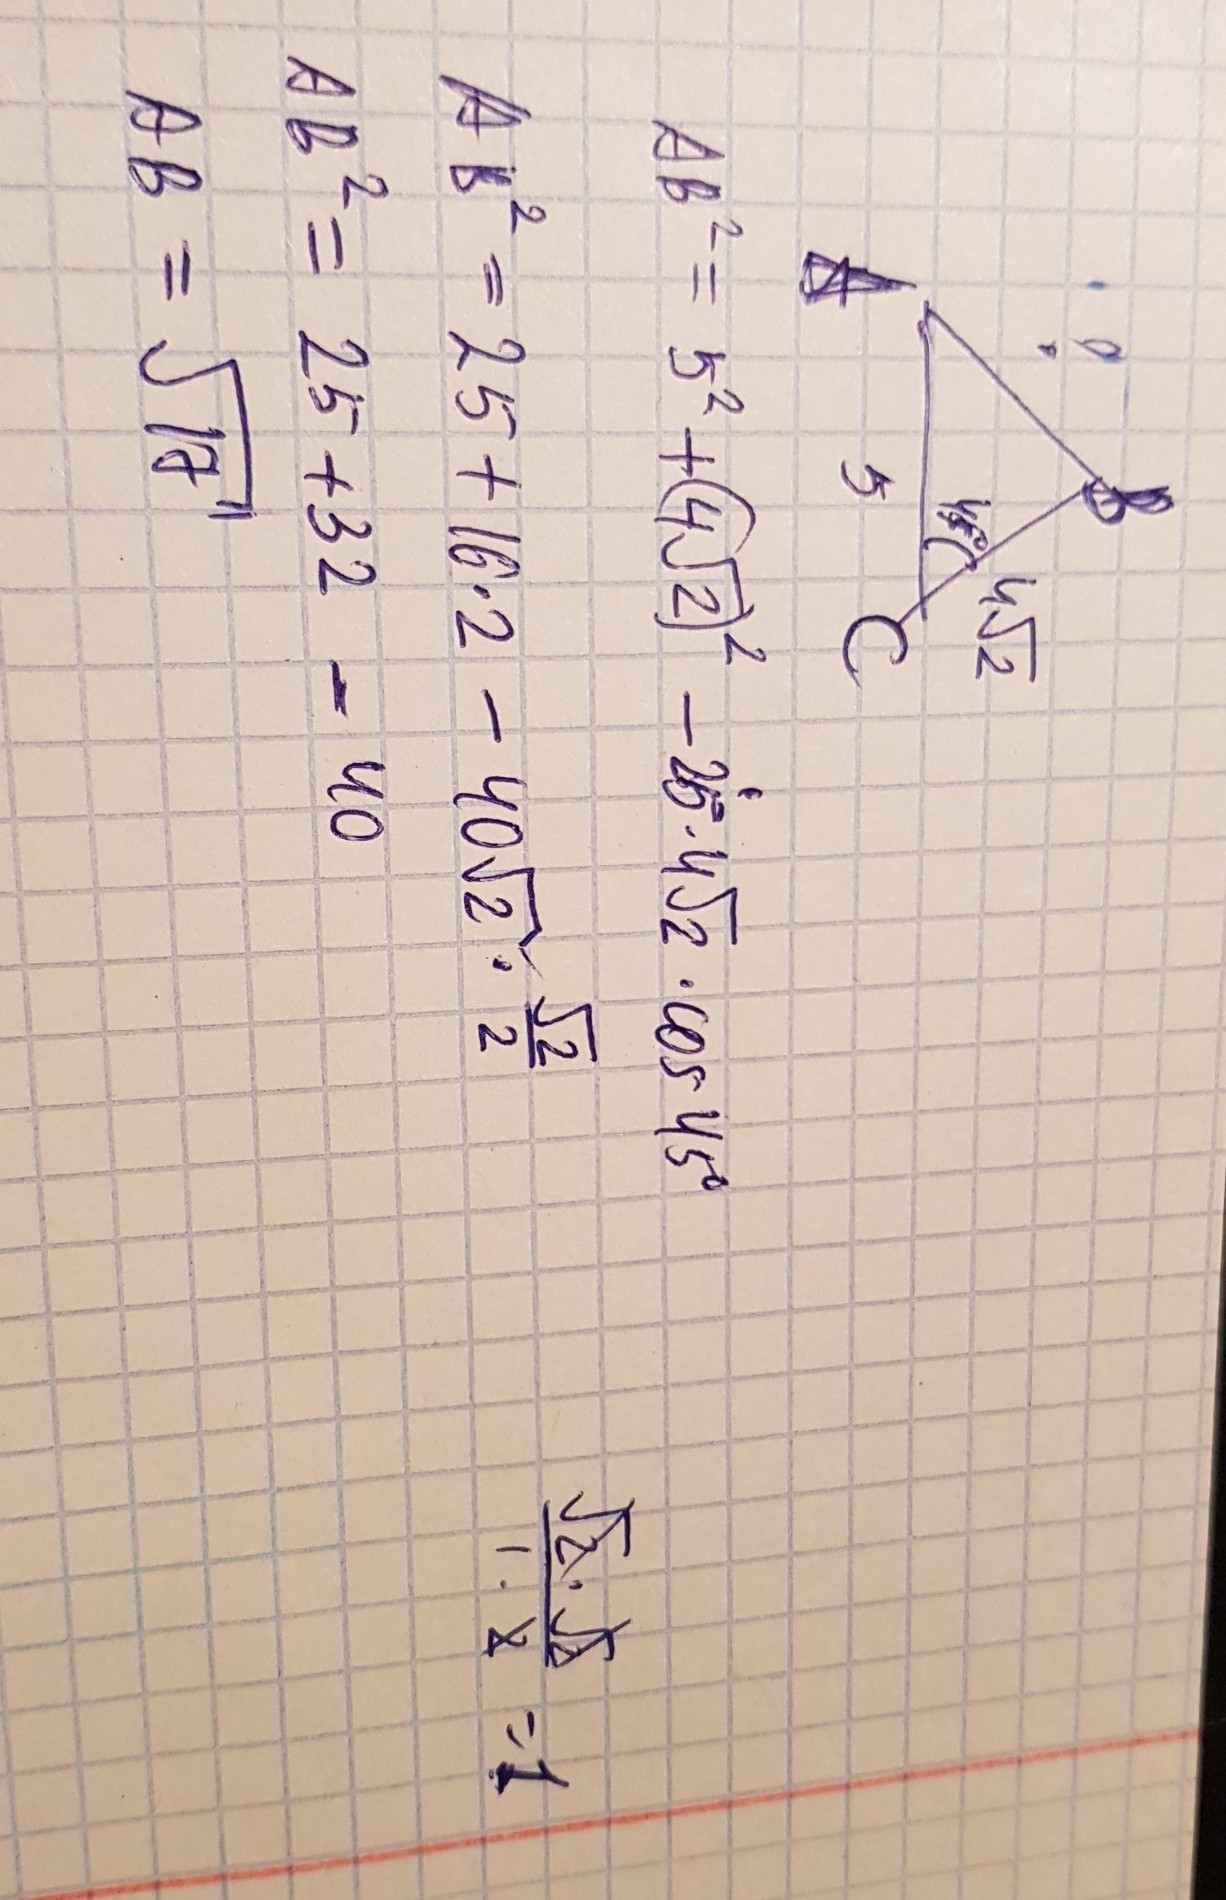 A
B
C
5
45°
4√2
AB² = 5² + (4√2)² - 2·5·4√2 · cos 45°
AB² = 25 + 16·2 - 40√2 · √2/2
AB² = 25 + 32 - 40
AB = √17
√2·√2/1·2 = 1